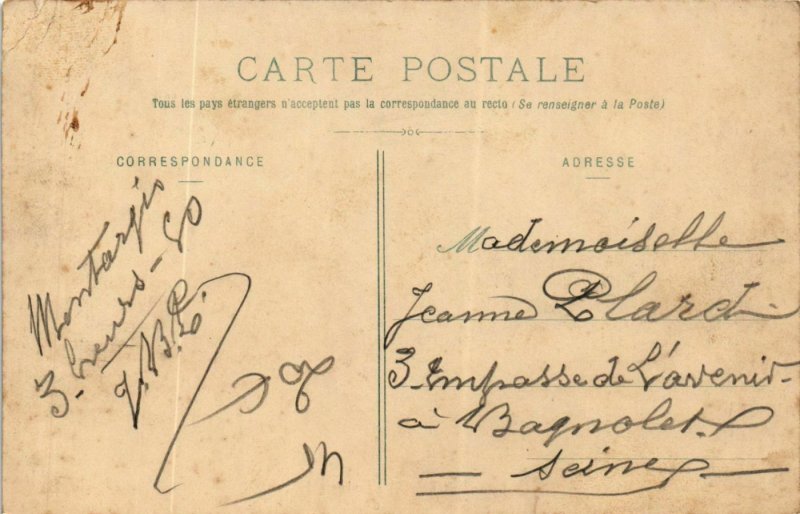 CARTE POSTALE
Tous les pays étrangers n'acceptent pas la correspondance au recto (Se renseigner à la Poste)
CORRESPONDANCE
Montargis
3 heures - 50
J.B.L.
ADRESSE
Mademoiselle
Jeanne Plard
3 Impasse de L'avenir
à Bagnolet
Seine